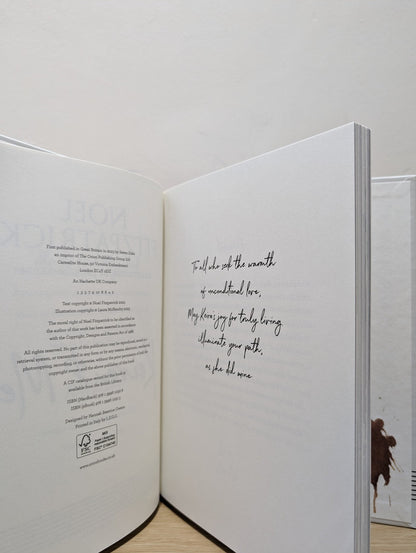 First published in Great Britain in 2023 by Seven Dials
an imprint of The Orion Publishing Group Ltd
Carmelite House, 50 Victoria Embankment
London EC4Y 0DZ
An Hachette UK Company
Text copyright © Noel Fitzpatrick 2023
Illustration copyright © Laura McKendry 2023
The moral right of Noel Fitzpatrick to be identified as
the author of this work has been asserted in accordance
with the Copyright, Designs and Patents Act of 1988.
All rights reserved. No part of this publication may be reproduced, stored in a
retrieval system, or transmitted in any form or by any means, electronic, mechanical,
photocopying, recording, or otherwise, without the prior permission of both the
copyright owner and the above publisher of this book.
A CIP catalogue record for this book is
available from the British Library.
ISBN (Hardback) 978 1
ISBN (eBook) 978 1
Printed in Italy by L.E.G.O.
FSC
MIX
www.orionbooks.co.uk
To all who seek the warmth
of unconditional love,
May Keira's joy for truly living
illuminate your path,
as she did mine
NOEL
FITZPATRICK